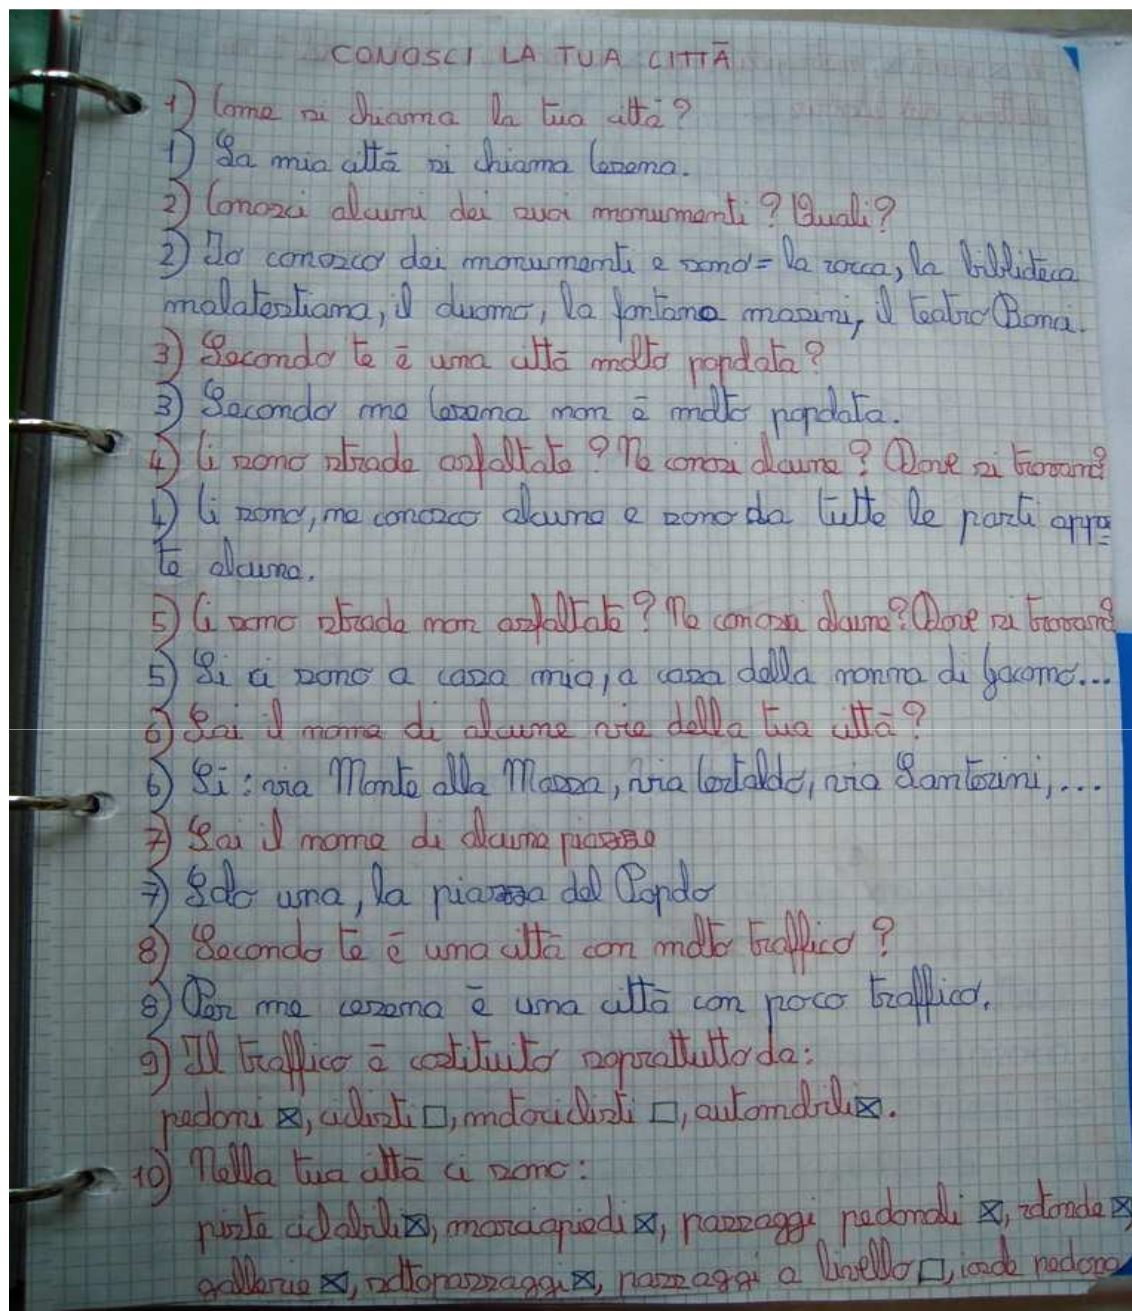 CONOSCI LA TUA CITTÀ
1) Come si chiama la tua città?
1) La mia città si chiama Cesena.
2) Conosci alcuni dei suoi monumenti? Quali?
2) Io conosco dei monumenti e sono= la rocca, la biblioteca
malatestiana, il duomo, la fontana masini, il teatro Bonci.
3) Secondo te è una città molto popolata?
3) Secondo me Cesena non è molto popolata.
4) Ci sono strade asfaltate? Ne conosci alcune? Dove si trovano?
4) Ci sono, ne conosco alcune e sono da tutte le parti appa=
te alcune.
5) Ci sono strade non asfaltate? Ne conosci alcune? Dove si trovano?
5) Si ci sono a casa mia, a casa della nonna di Giacomo...
6) Sai il nome di alcune vie della tua città?
6) Si: via Monte alla Massa, via Castaldo, via Santorini,...
7) Sai il nome di alcune piazze
7) Solo una, la piazza del Popolo
8) Secondo te è una città con molto traffico?
8) Per me cesena è una città con poco traffico.
9) Il traffico è costituito soprattutto da:
pedoni ☒, ciclisti □, motociclisti □, automobili ☒.
10) Nella tua città ci sono:
piste ciclabili ☒, marciapiedi ☒, passaggi pedonali ☒, rotonde ☒
gallerie ☒, sottopassaggi ☒, passaggi a livello □, isole pedona